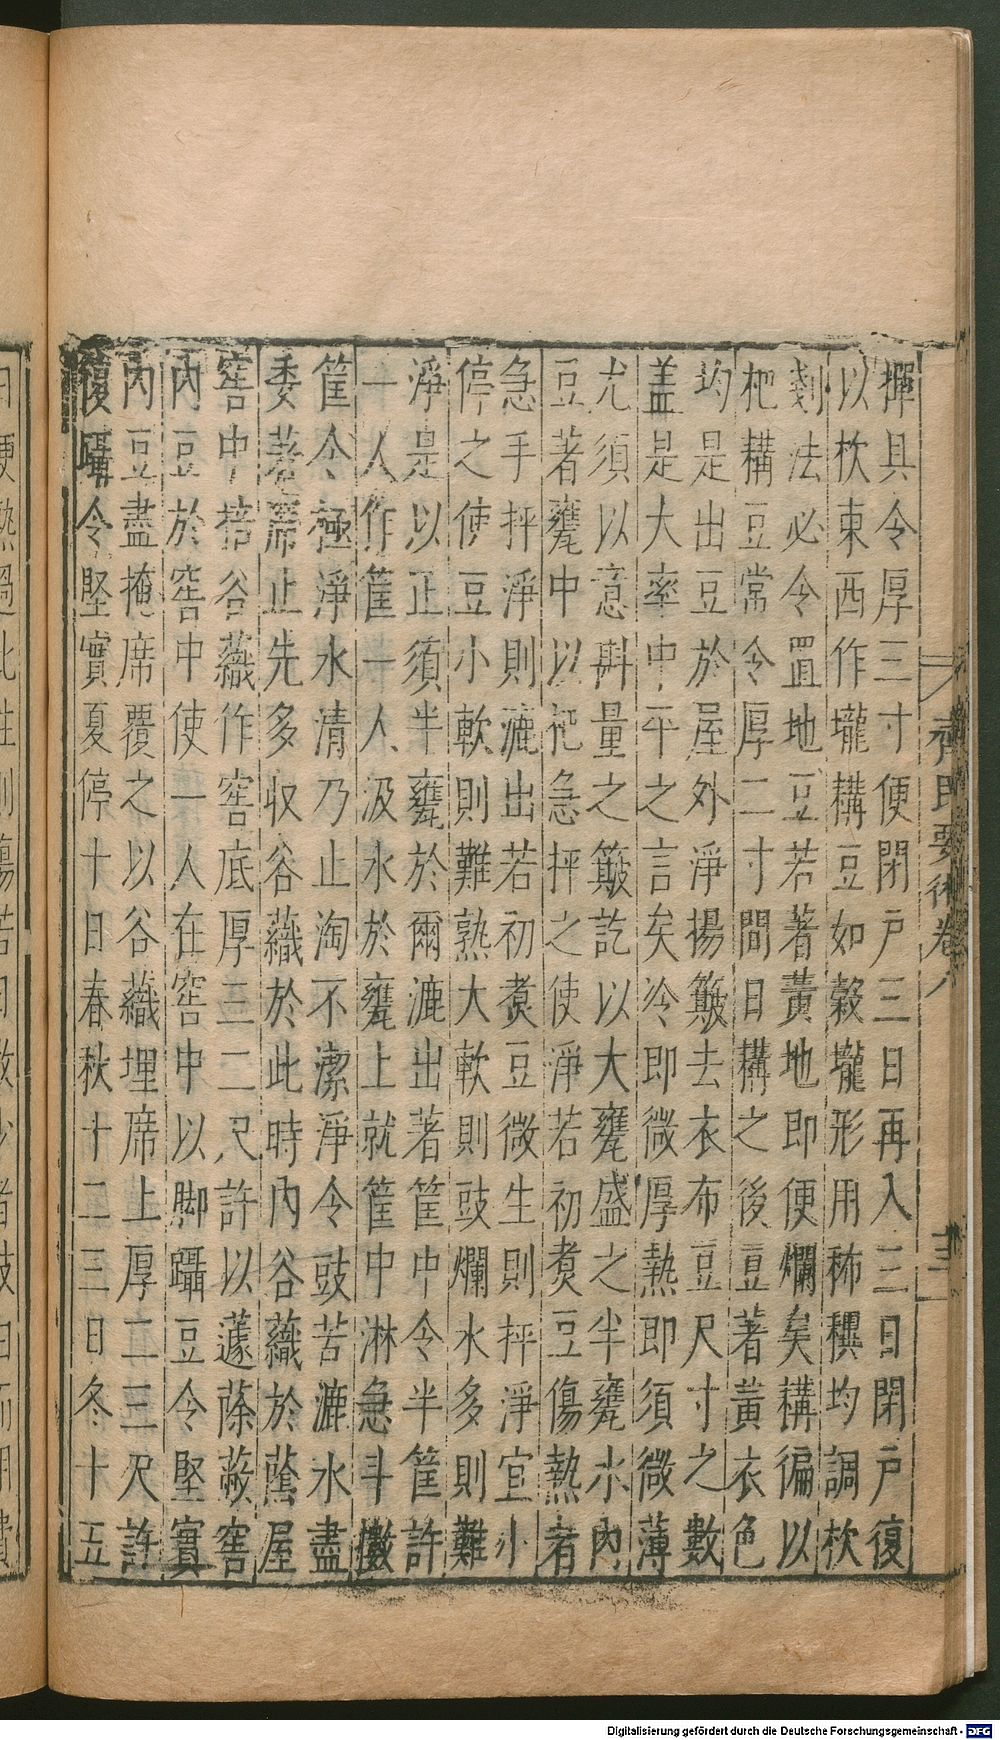 齊民要術卷八
十三
撣具令厚三寸便閉戶三日再入三日閉戶復
以杴東西作壠耩豆如穀壠形用稀穊均調杴
剗法必令置地豆若著黃地即便爛矣耩徧以
杷耩豆常令厚二寸間日耩之後豆著黃衣色
均是出豆於屋外淨揚簸去衣布豆尺寸之數
盖是大率中平之言矣冷即微厚熱即須微薄
尤須以意斟量之簸訖以大甕盛之半甕水內
豆著甕中以杷急抨之使淨若初煑豆傷熱者
急手抨淨則漉出若初煑豆微生則抨淨宜小
停之使豆小軟則難熟大軟則豉爛水多則難
淨是以正須半甕於爾漉出著筐中令半筐許
一人作筐一人汲水於甕上就筐中淋急斗擻
筐令極淨水清乃止淘不潔淨令豉苦漉水盡
委著席止先多收谷䕌於此時內谷䕌於蔭屋
窖中掊谷䕌作窖底厚三二尺許以蘧蒢蔽窖
內豆於窖中使一人在窖中以脚躡豆令堅實
內豆盡掩席覆之以谷䕌埋席上厚二三尺許
復躡令堅實夏停十日春秋十二三日冬十五
Digitalisierung gefördert durch die Deutsche Forschungsgemeinschaft - DFG